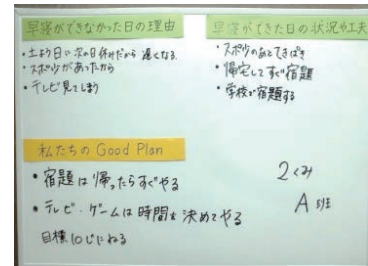 早寝ができなかった日の理由
・土よう日に次の日休みだから遅くなる
・スポ少があったから
・テレビ見てしまう
早寝ができた日の状況や工夫
・スポ少のあとてきぱき
・帰宅してすぐ宿題
・学校で宿題する
私たちの Good Plan
・宿題は帰ったらすぐやる
・テレビ・ゲームは時間を決めてやる
目標10じにねる
2くみ
A班